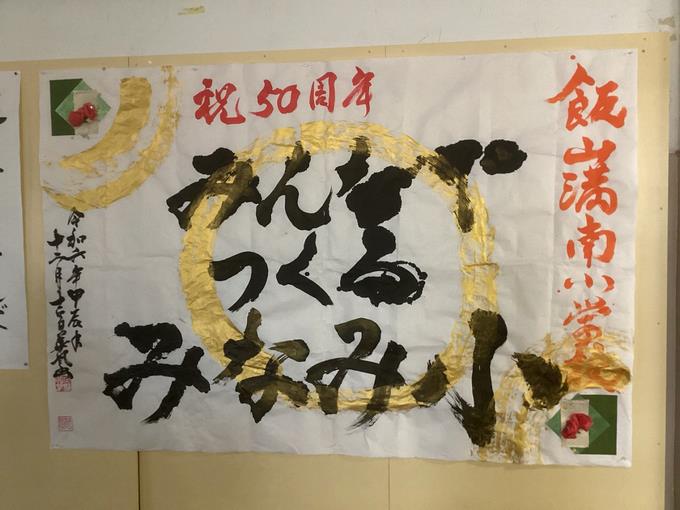 祝50周年
飯山満南小学校
みんなで
つくる
みなみ小
令和六年甲辰年